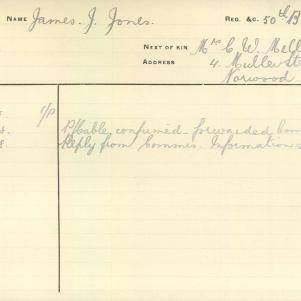 NAME James. J. Jones. REG. &C. 50th B
NEXT OF KIN Mrs C. W. Mell
ADDRESS 4. Muller St
Norwood.
1/P P/Cable, confirmed - forwarded Com
Reply from Commrs. Information